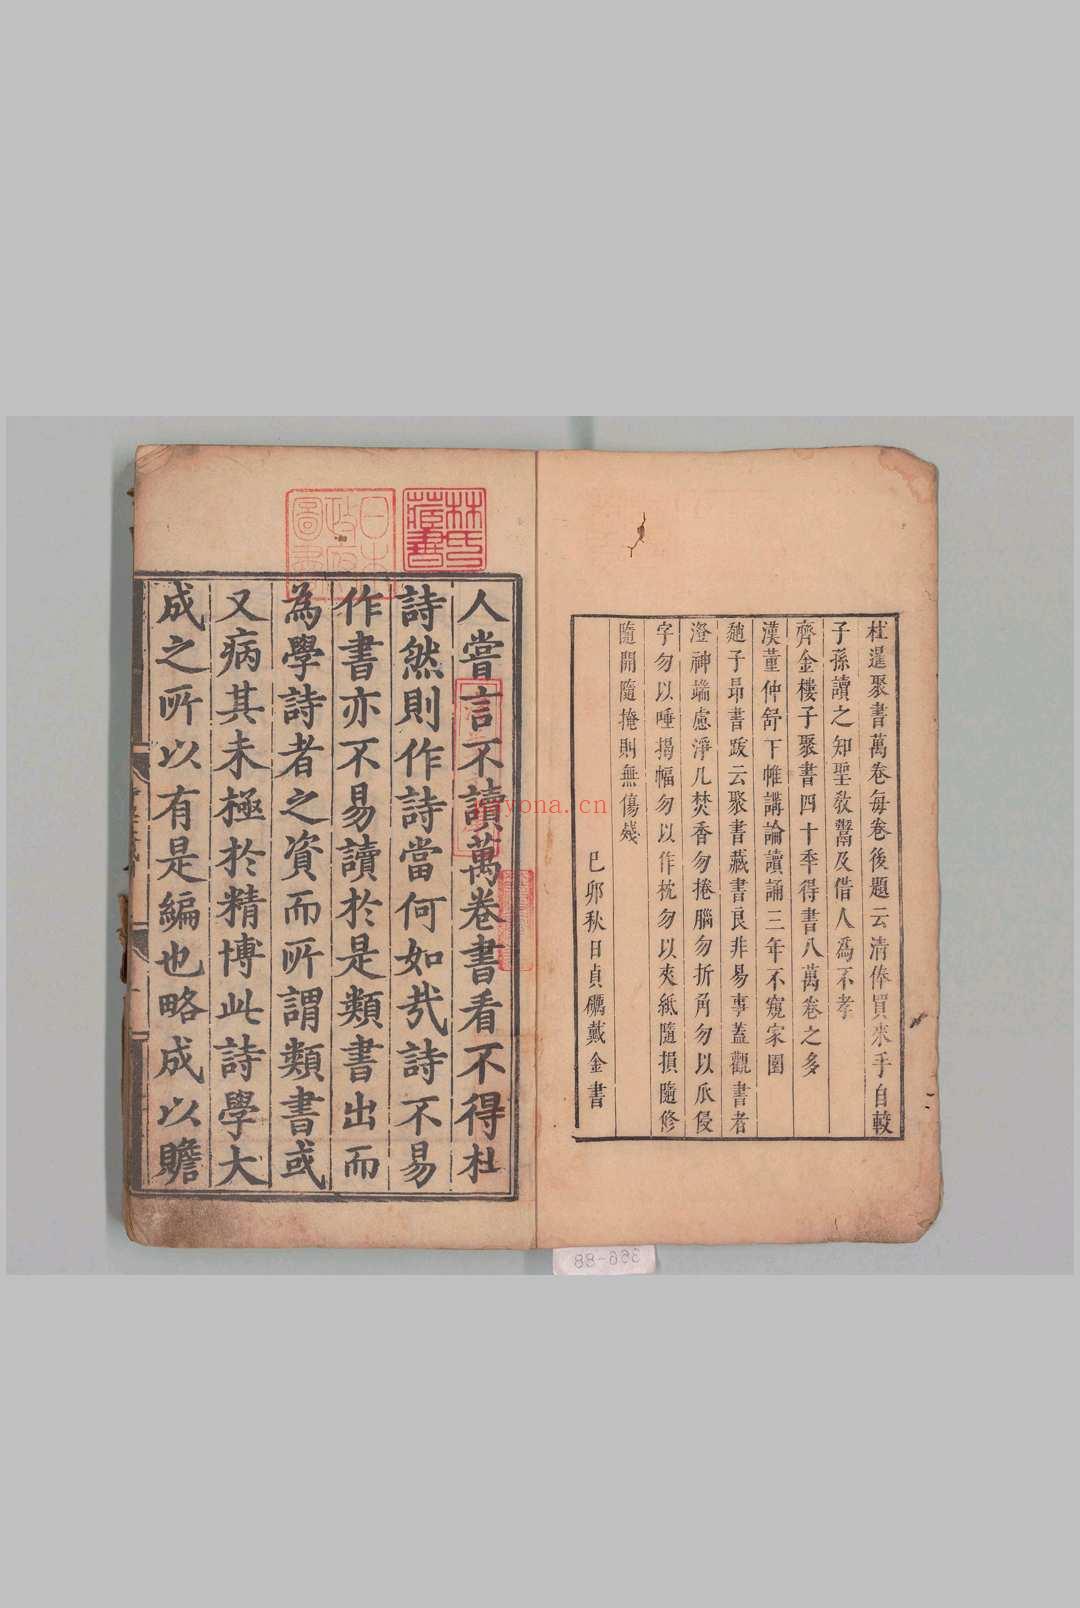 杜暹聚書萬卷每卷後題云清俸買來手自較
子孫讀之知聖教鬻及借人爲不孝
齊金樓子聚書四十秊得書八萬卷之多
漢董仲舒下帷講論讀誦三年不窺家園
趙子昻書跋云聚書藏書良非易事蓋觀書者
澄神端慮淨几焚香勿捲腦勿折角勿以爪侵
字勿以唾揭幅勿以作枕勿以夾紙隨損隨修
隨開隨掩則無傷殘
己卯秋日貞礪戴金書
林氏
藏書
日本
政府
圖書
人嘗言不讀萬卷書看不得杜
詩然則作詩當何如㢤詩不易
作書亦不易讀於是類書出而
為學詩者之資而所謂類書或
又病其未極於精博此詩學大
成之所以有是編也略成以贍
yona.cn
386-88